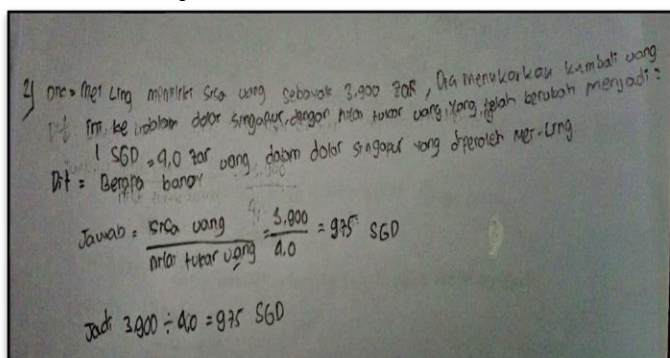 2) Dik = Mei Ling memiliki sisa uang sebanyak 3.900 ZAR, Dia menukarkan kembali uang
ini ke dalam dolar singapur, dengan nilai tukar uang, yang telah berubah menjadi :
1 SGD = 4,0 zar
Dit = Berapa banar uang dalam dolar singapur yang diperoleh Mei-Ling
Jawab = sisa uang / nilai tukar uang = 3.900 / 4.0 = 975 SGD
Jadi 3.900 ÷ 4.0 = 975 SGD